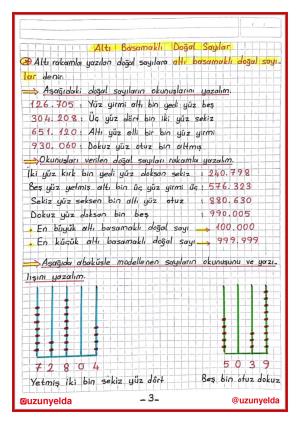 Altı Basamaklı Doğal Sayılar
Altı rakamla yazılan doğal sayılara altı basamaklı doğal sayı-
lar denir.
Aşağıdaki doğal sayıların okunuşlarını yazalım.
126.705 : Yüz yirmi altı bin yedi yüz beş
304.208 : Üç yüz dört bin iki yüz sekiz
651.120 : Altı yüz elli bir bin yüz yirmi
930.060 : Dokuz yüz otuz bin altmış
Okunuşları verilen doğal sayıları rakamla yazalım.
İki yüz kırk bin yedi yüz doksan sekiz : 240.798
Beş yüz yetmiş altı bin üç yüz yirmi üç : 576.323
Sekiz yüz seksen bin altı yüz otuz : 880.630
Dokuz yüz doksan bin beş : 990.005
• En büyük altı basamaklı doğal sayı → 100.000
• En küçük altı basamaklı doğal sayı → 999.999
Aşağıda abaküsle modellenen sayıların okunuşunu ve yazı-
lışını yazalım.
7 2 8 0 4
5 0 3 9
Yetmiş iki bin sekiz yüz dört
Beş bin otuz dokuz
@uzunyelda
-3-
@uzunyelda